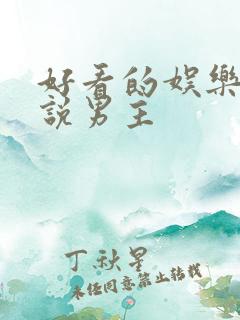 好看的娱樂
説男主
丁秋星
未经同意禁止转载